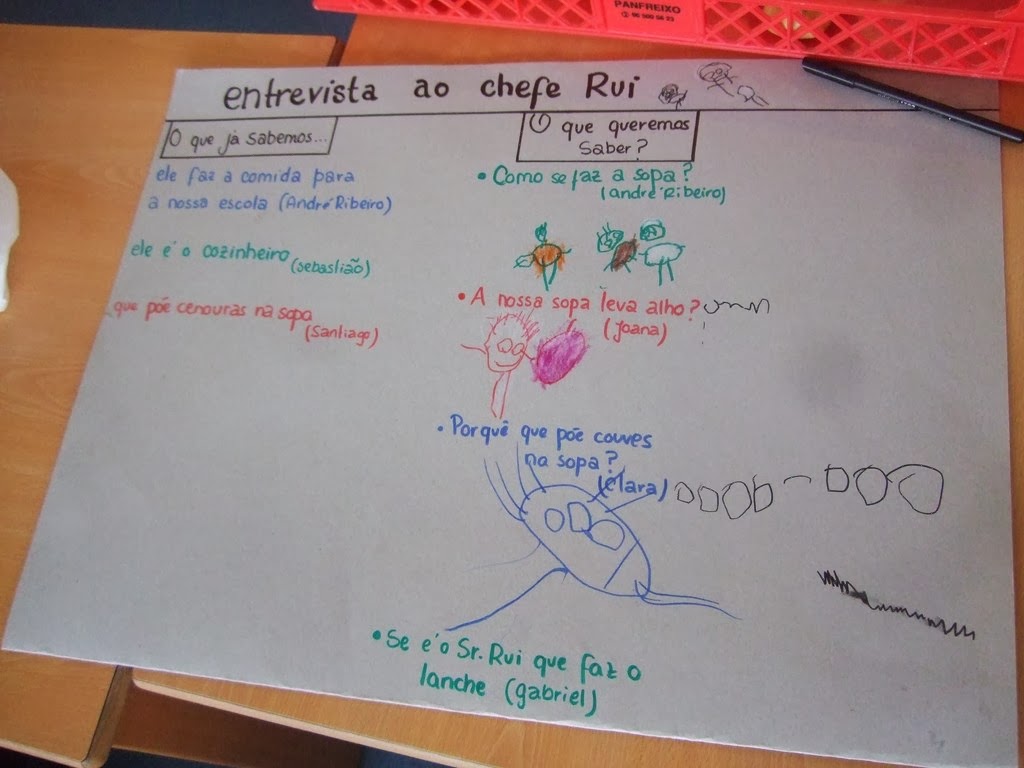 PANFREIXO
entrevista ao chefe Rui
O que já sabemos...
ele faz a comida para
a nossa escola (André Ribeiro)
ele é o cozinheiro (sebastião)
que põe cenouras na sopa
(Santiago)
O que queremos
saber?
• Como se faz a sopa?
(andré Ribeiro)
• A nossa sopa leva alho?
(Joana)
• Porquê que põe couves
na sopa?
(Clara)
• Se é o Sr. Rui que faz o
lanche (gabriel)